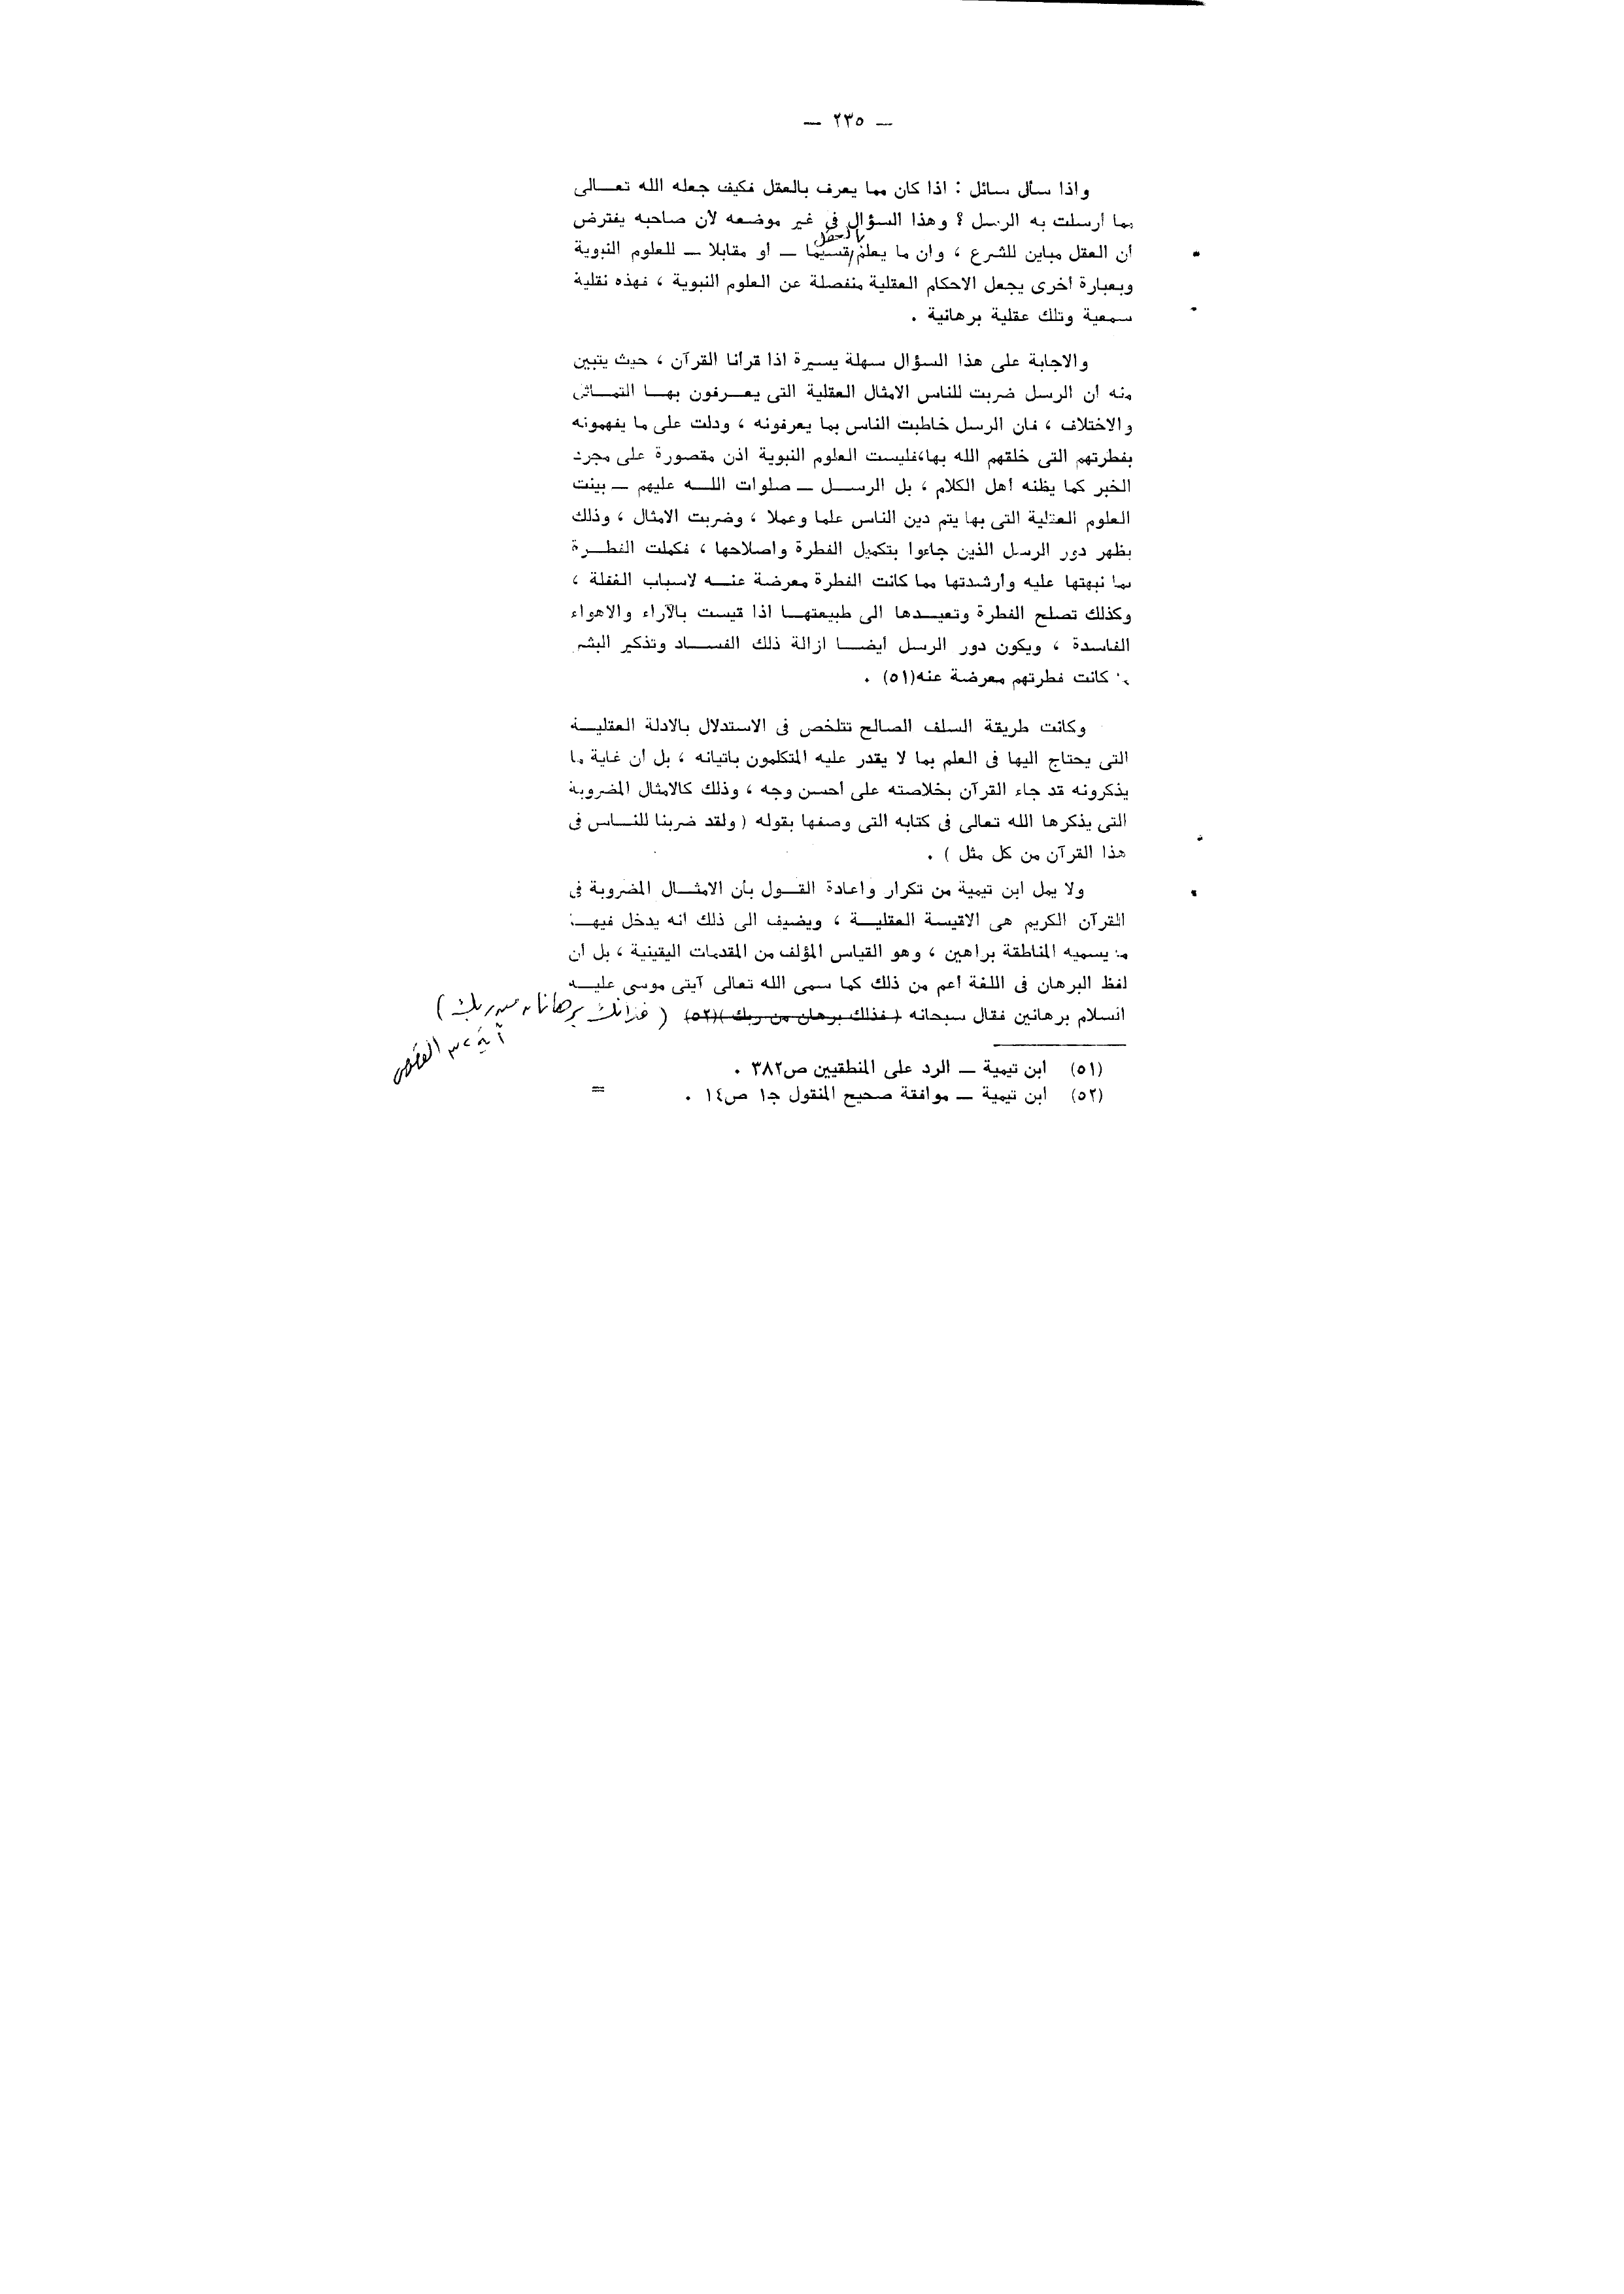 — ٢٣٥ —
واذا سأل سائل : اذا كان مما يعرف بالعقل فكيف جعله الله تعـــالى
بما أرسلت به الرسل ؟ وهذا السؤال فى غير موضعه لأن صاحبه يفترض
بالعقل
أن العقل مباين للشرع ، وان ما يعلم/قسيما — أو مقابلا — للعلوم النبوية
وبعبارة أخرى يجعل الاحكام العقلية منفصلة عن العلوم النبوية ، فهذه نقلية
سمعية وتلك عقلية برهانية .
والاجابة على هذا السؤال سهلة يسيرة اذا قرأنا القرآن ، حيث يتبين
منه أن الرسل ضربت للناس الامثال العقلية التى يعـــرفون بهـــا التمـــاثل
والاختلاف ، فان الرسل خاطبت الناس بما يعرفونه ، ودلت على ما يفهمونه
بفطرتهم التى خلقهم الله بها،فليست العلوم النبوية اذن مقصورة على مجرد
الخبر كما يظنه أهل الكلام ، بل الرســـل — صلوات اللـــه عليهم — بينت
العلوم العقلية التى بها يتم دين الناس علما وعملا ، وضربت الامثال ، وذلك
يظهر دور الرسل الذين جاءوا بتكميل الفطرة واصلاحها ، فكملت الفطـــرة
بما نبهتها عليه وأرشدتها مما كانت الفطرة معرضة عنـــه لاسباب الغفلة ،
وكذلك تصلح الفطرة وتعيـــدها الى طبيعتهـــا اذا قيست بالآراء والاهواء
الفاسدة ، ويكون دور الرسل أيضـــا ازالة ذلك الفســـاد وتذكير البشر
كانت فطرتهم معرضة عنه(٥١) .
وكانت طريقة السلف الصالح تتلخص فى الاستدلال بالادلة العقليـــة
التى يحتاج اليها فى العلم بما لا يقدر عليه المتكلمون باتيانه ، بل أن غاية ما
يذكرونه قد جاء القرآن بخلاصته على أحسن وجه ، وذلك كالامثال المضروبة
التى يذكرها الله تعالى فى كتابه التى وصفها بقوله ( ولقد ضربنا للنـــاس فى
هذا القرآن من كل مثل ) .
ولا يمل ابن تيمية من تكرار واعادة القـــول بأن الامثـــال المضروبة فى
القرآن الكريم هى الاقيسة العقليـــة ، ويضيف الى ذلك انه يدخل فيهـــا
ما يسميه المناطقة براهين ، وهو القياس المؤلف من المقدمات اليقينية ، بل أن
لفظ البرهان فى اللغة أعم من ذلك كما سمى الله تعالى آيتى موسى عليـــه
السلام برهانين فقال سبحانه ( فذلك برهان من ربك )(٥٢) ( فذانك برهانان من ربك )
آية ٣٢ القصص
(٥١) ابن تيمية — الرد على المنطقيين ص٣٨٢ .
(٥٢) ابن تيمية — موافقة صحيح المنقول ج١ ص١٤ .
=